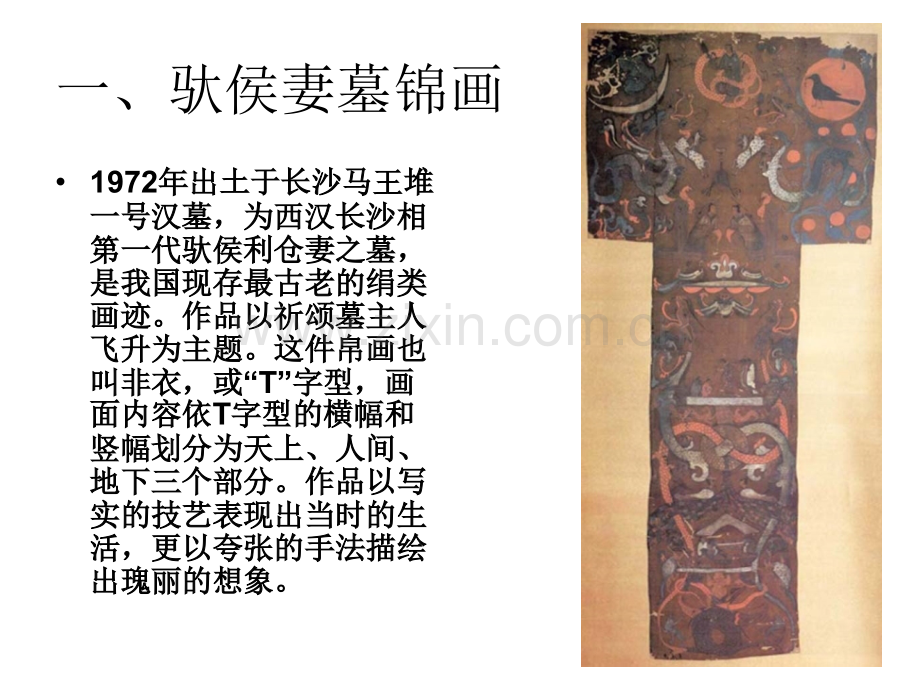 一、驮侯妻墓锦画
• 1972年出土于长沙马王堆
一号汉墓，为西汉长沙相
第一代驮侯利仓妻之墓，
是我国现存最古老的绢类
画迹。作品以祈颂墓主人
飞升为主题。这件帛画也
叫非衣，或“T”字型，画
面内容依T字型的横幅和
竖幅划分为天上、人间、
地下三个部分。作品以写
实的技艺表现出当时的生
活，更以夸张的手法描绘
出瑰丽的想象。
www.zixin.com.cn